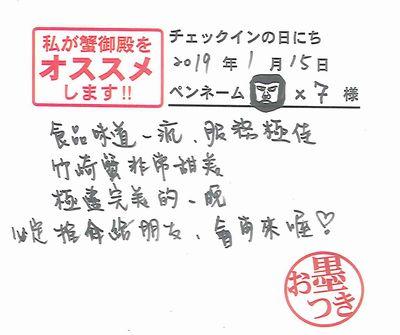 私が蟹御殿を
オススメ
します!!
チェックインの日にち
2019年1月15日
ペンネーム ×7 様
食品味道一流、服務極佳
竹崎蟹非常甜美
極盡完美的一晚
必定推介給朋友、會再來喔♡
お墨つき